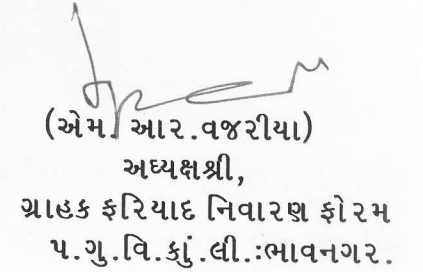 (એમ. આર.વજરીયા)
અધ્યક્ષશ્રી,
ગ્રાહક ફરિયાદ નિવારણ ફોરમ
પ.ગુ.વિ.કાું.લી.ઃભાવનગર.